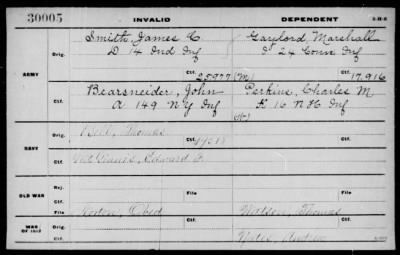 30005 INVALID DEPENDENT
Orig. Smith, James C. Gaylord Marshall
D 14 Ind Inf 24 Conn Inf
ARMY Ctf. 25977 (M) Ctf. 17.916
Ctf. Bearsneider, John Perkins, Charles M
A 149 N Y Inf K 16 N H Inf
Orig. Bell, Thomas Ctf.
NAVY
Ctf. Edward
OLD WAR Rej. File File
Ctf.
WAR OF 1812 Orig. Norton, Obed Ctf. Watson, Thomas
Ctf. Yates, Andrew